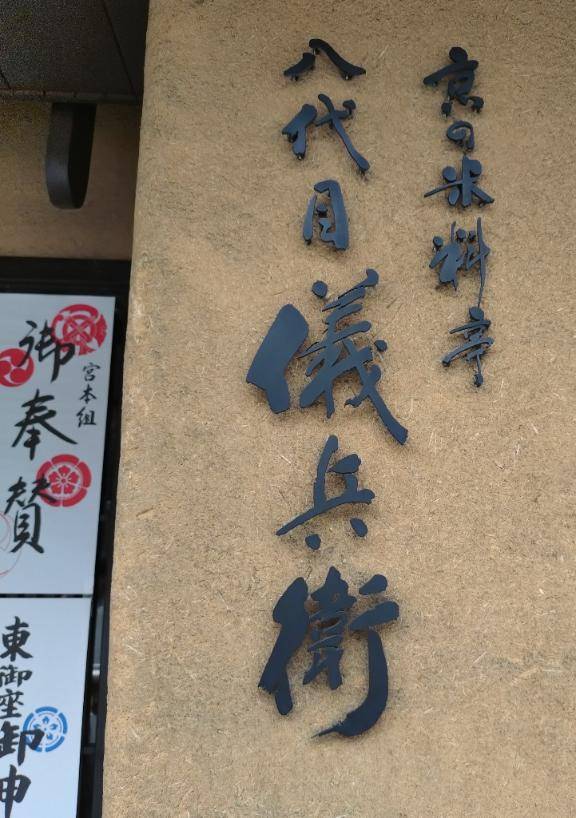 京の米料亭
八代目儀兵衛
宮本組
御奉賛
東御座
御神